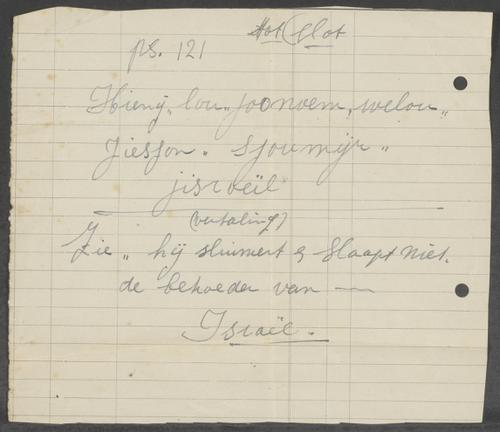 tot slot
ps. 121
Hieny „ lou „ joonoem, welou „
Jiesjon „ sjoumijr „
jisroëil
(vertaling)
Zie „ hij sluimert & slaapt niet.
de behoeder van —
Israël.